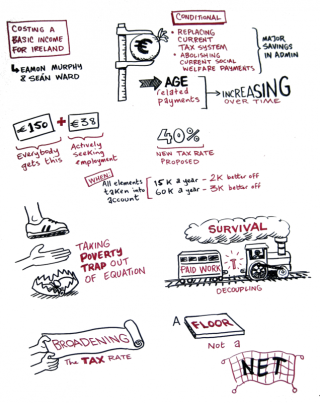 COSTING A
BASIC INCOME
FOR IRELAND
EAMON MURPHY
& SEÁN WARD
€
CONDITIONAL
• REPLACING
CURRENT
TAX SYSTEM
• ABOLISHING
CURRENT SOCIAL
WELFARE PAYMENTS
MAJOR
SAVINGS
IN ADMIN
AGE
related
payments
INCREASING
OVER TIME
€150 + €38
Everybody
gets this
Actively
seeking
employment
40%
NEW TAX RATE
PROPOSED
WHEN
All elements
taken into
account
15K a year - 2K better off
60K a year - 3K better off
TAKING
POVERTY
TRAP OUT
OF EQUATION
SURVIVAL
PAID WORK
DECOUPLING
BROADENING
The TAX RATE
A FLOOR
Not a
NET